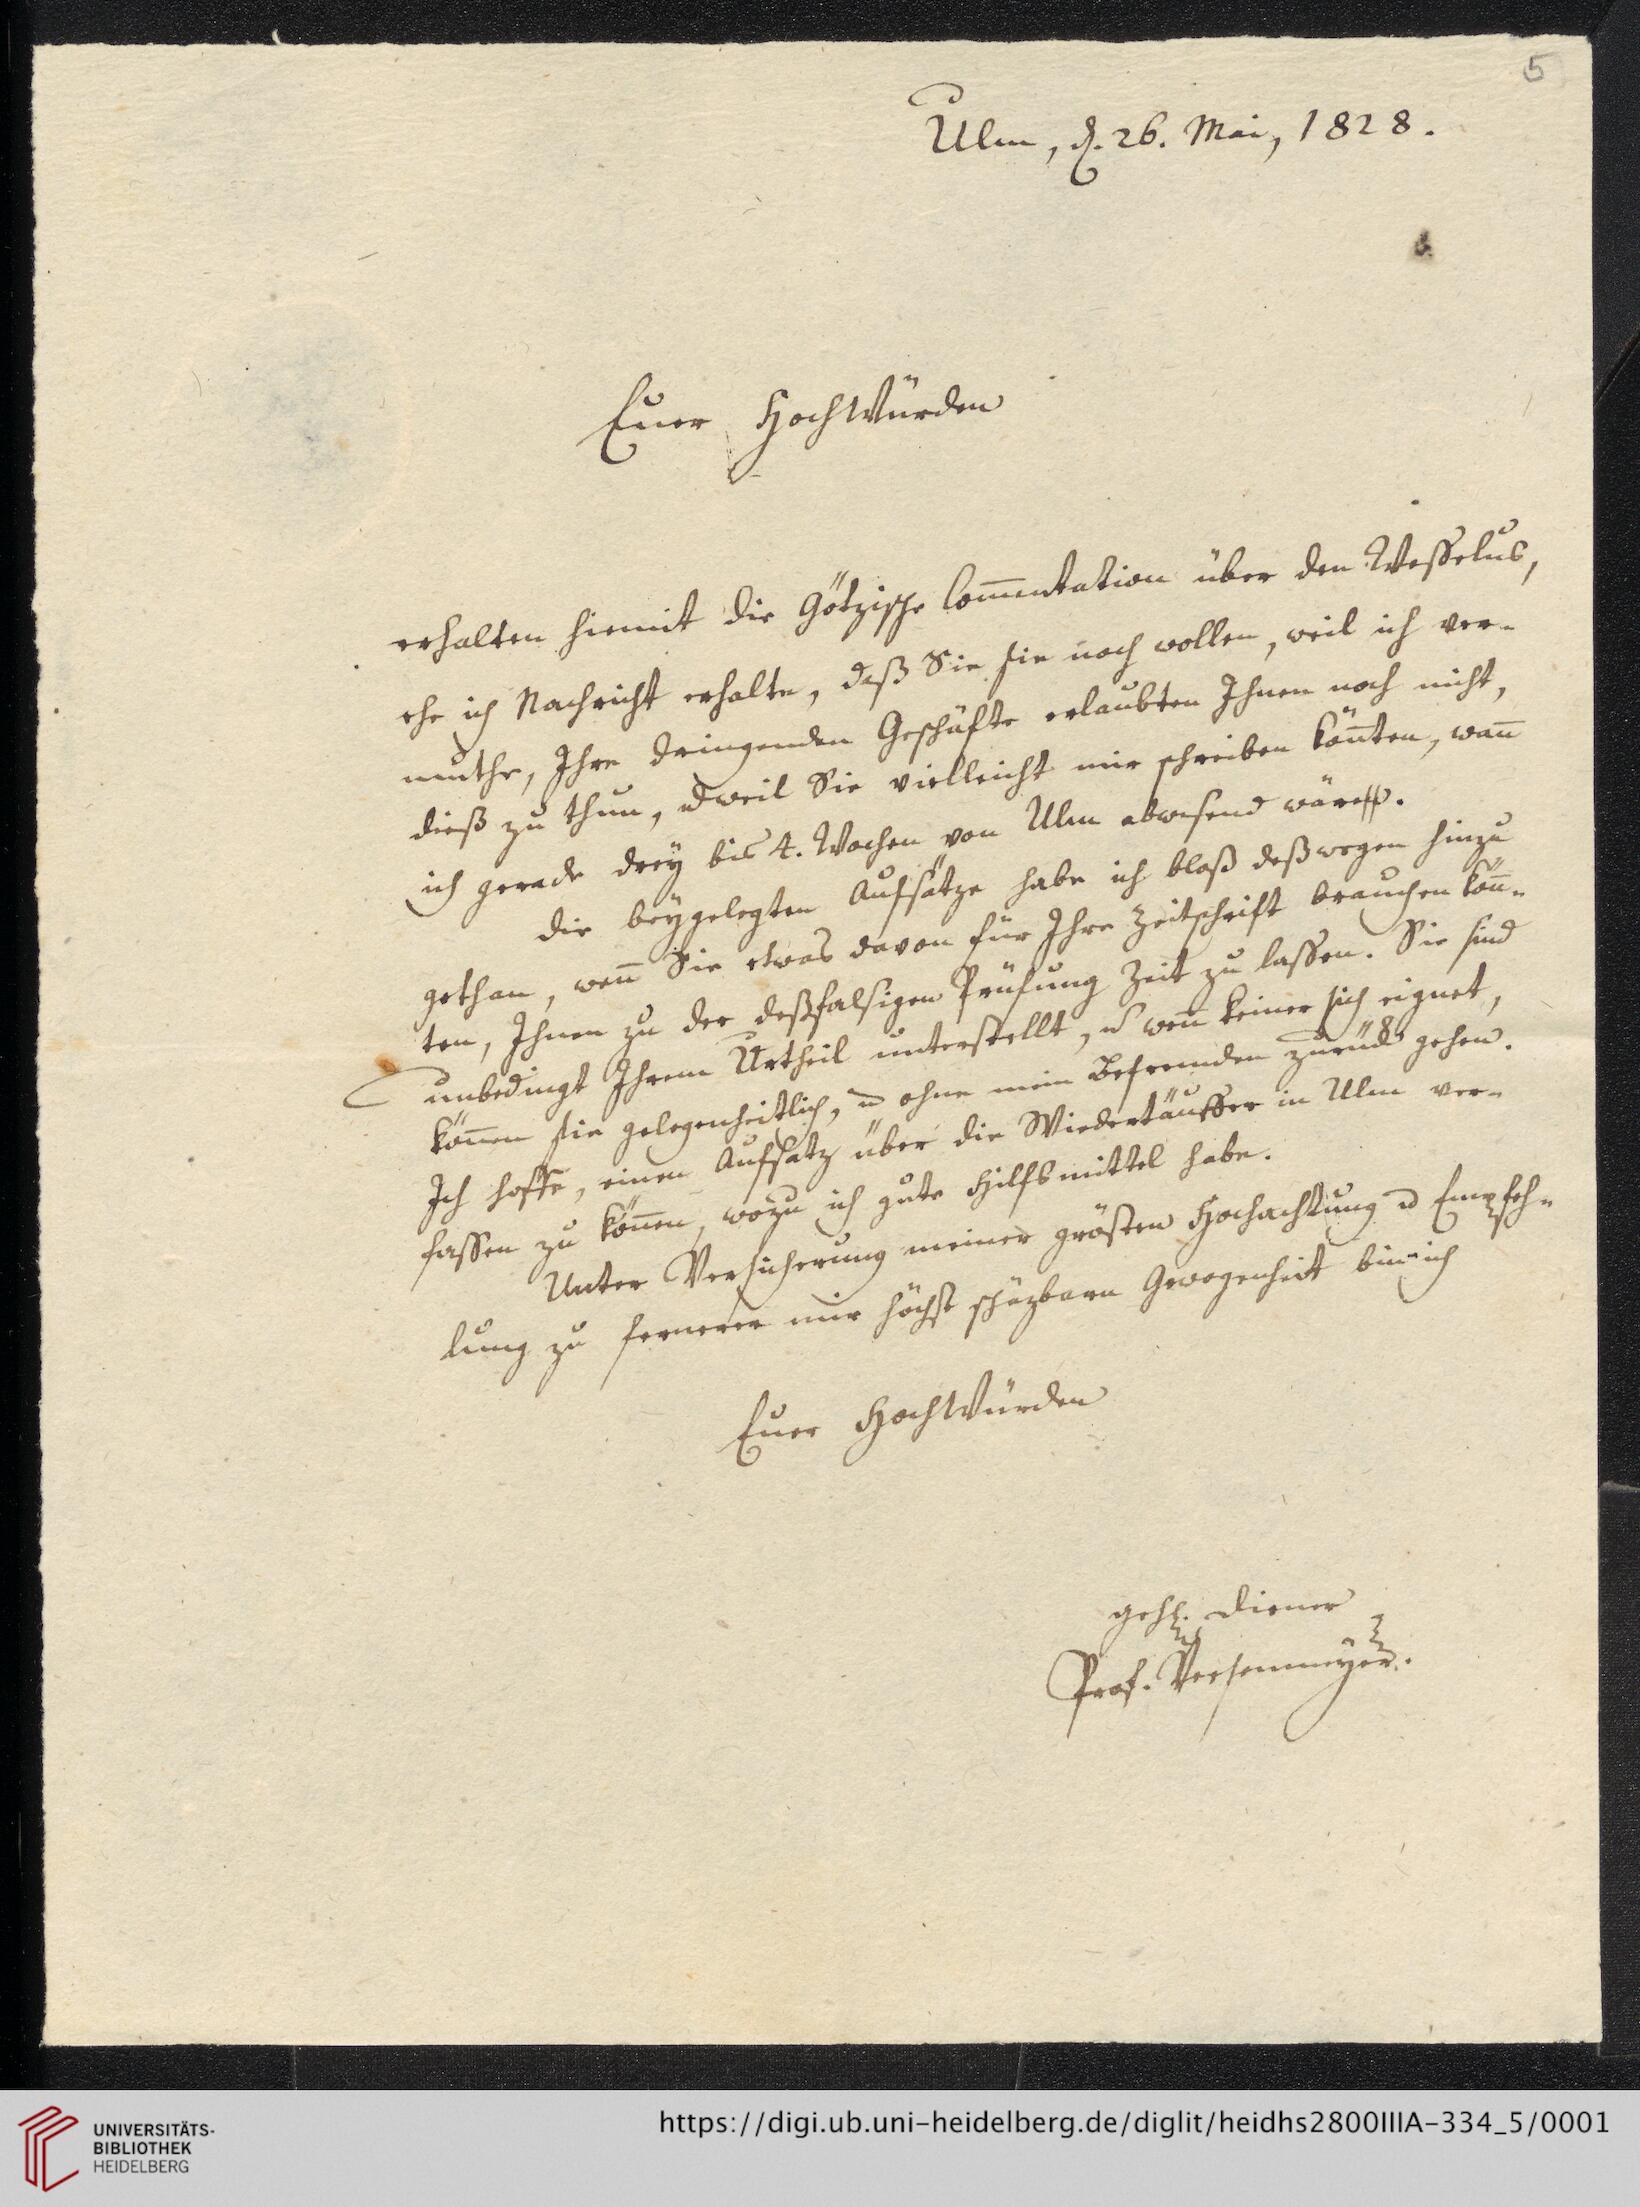 5
Ulm, d. 26. Mai, 1828.
Euer HochWürden
erhalten hiemit die Götzische Com̄entation über den Wesselus,
ehe ich Nachricht erhalte, daß Sie sie noch wollen, weil ich ver-
muthe, Ihre dringenden Geschäfte erlaubten Ihnen noch nicht,
dieß zu thun, u weil Sie vielleicht mir schreiben kön̄ten, wan̄
ich gerade drey bis 4. Wochen von Ulm abwesend wäre.
Die beygelegten Aufsätze habe ich bloß deßwegen hinzu
gethan, wen̄ Sie etwas davon für Ihre Zeitschrift brauchen kön̄-
ten, Ihnen zu der deßfalsigen Prüfung Zeit zu lassen. Sie sind
unbedingt Ihrem Urtheil unterstellt, u wen̄ keiner sich eignet,
kön̄en sie gelegenheitlich, u ohne mein Befremden zurück gehen.
Ich hoffe, einen Aufsatz über die Wiedertäuffer in Ulm ver-
fassen zu kön̄en, wozu ich gute Hilfsmittel habe.
Unter Versicherung meiner grösten Hochachtung u Empfeh-
lung zu fernerer mir höchst schäzbarn Gewogenheit bin ich
Euer HochWürden
gehs. Diener
Prof. Veesenmeyer.
UNIVERSITÄTS-
BIBLIOTHEK
HEIDELBERG
https://digi.ub.uni-heidelberg.de/diglit/heidhs2800IIIA-334_5/0001